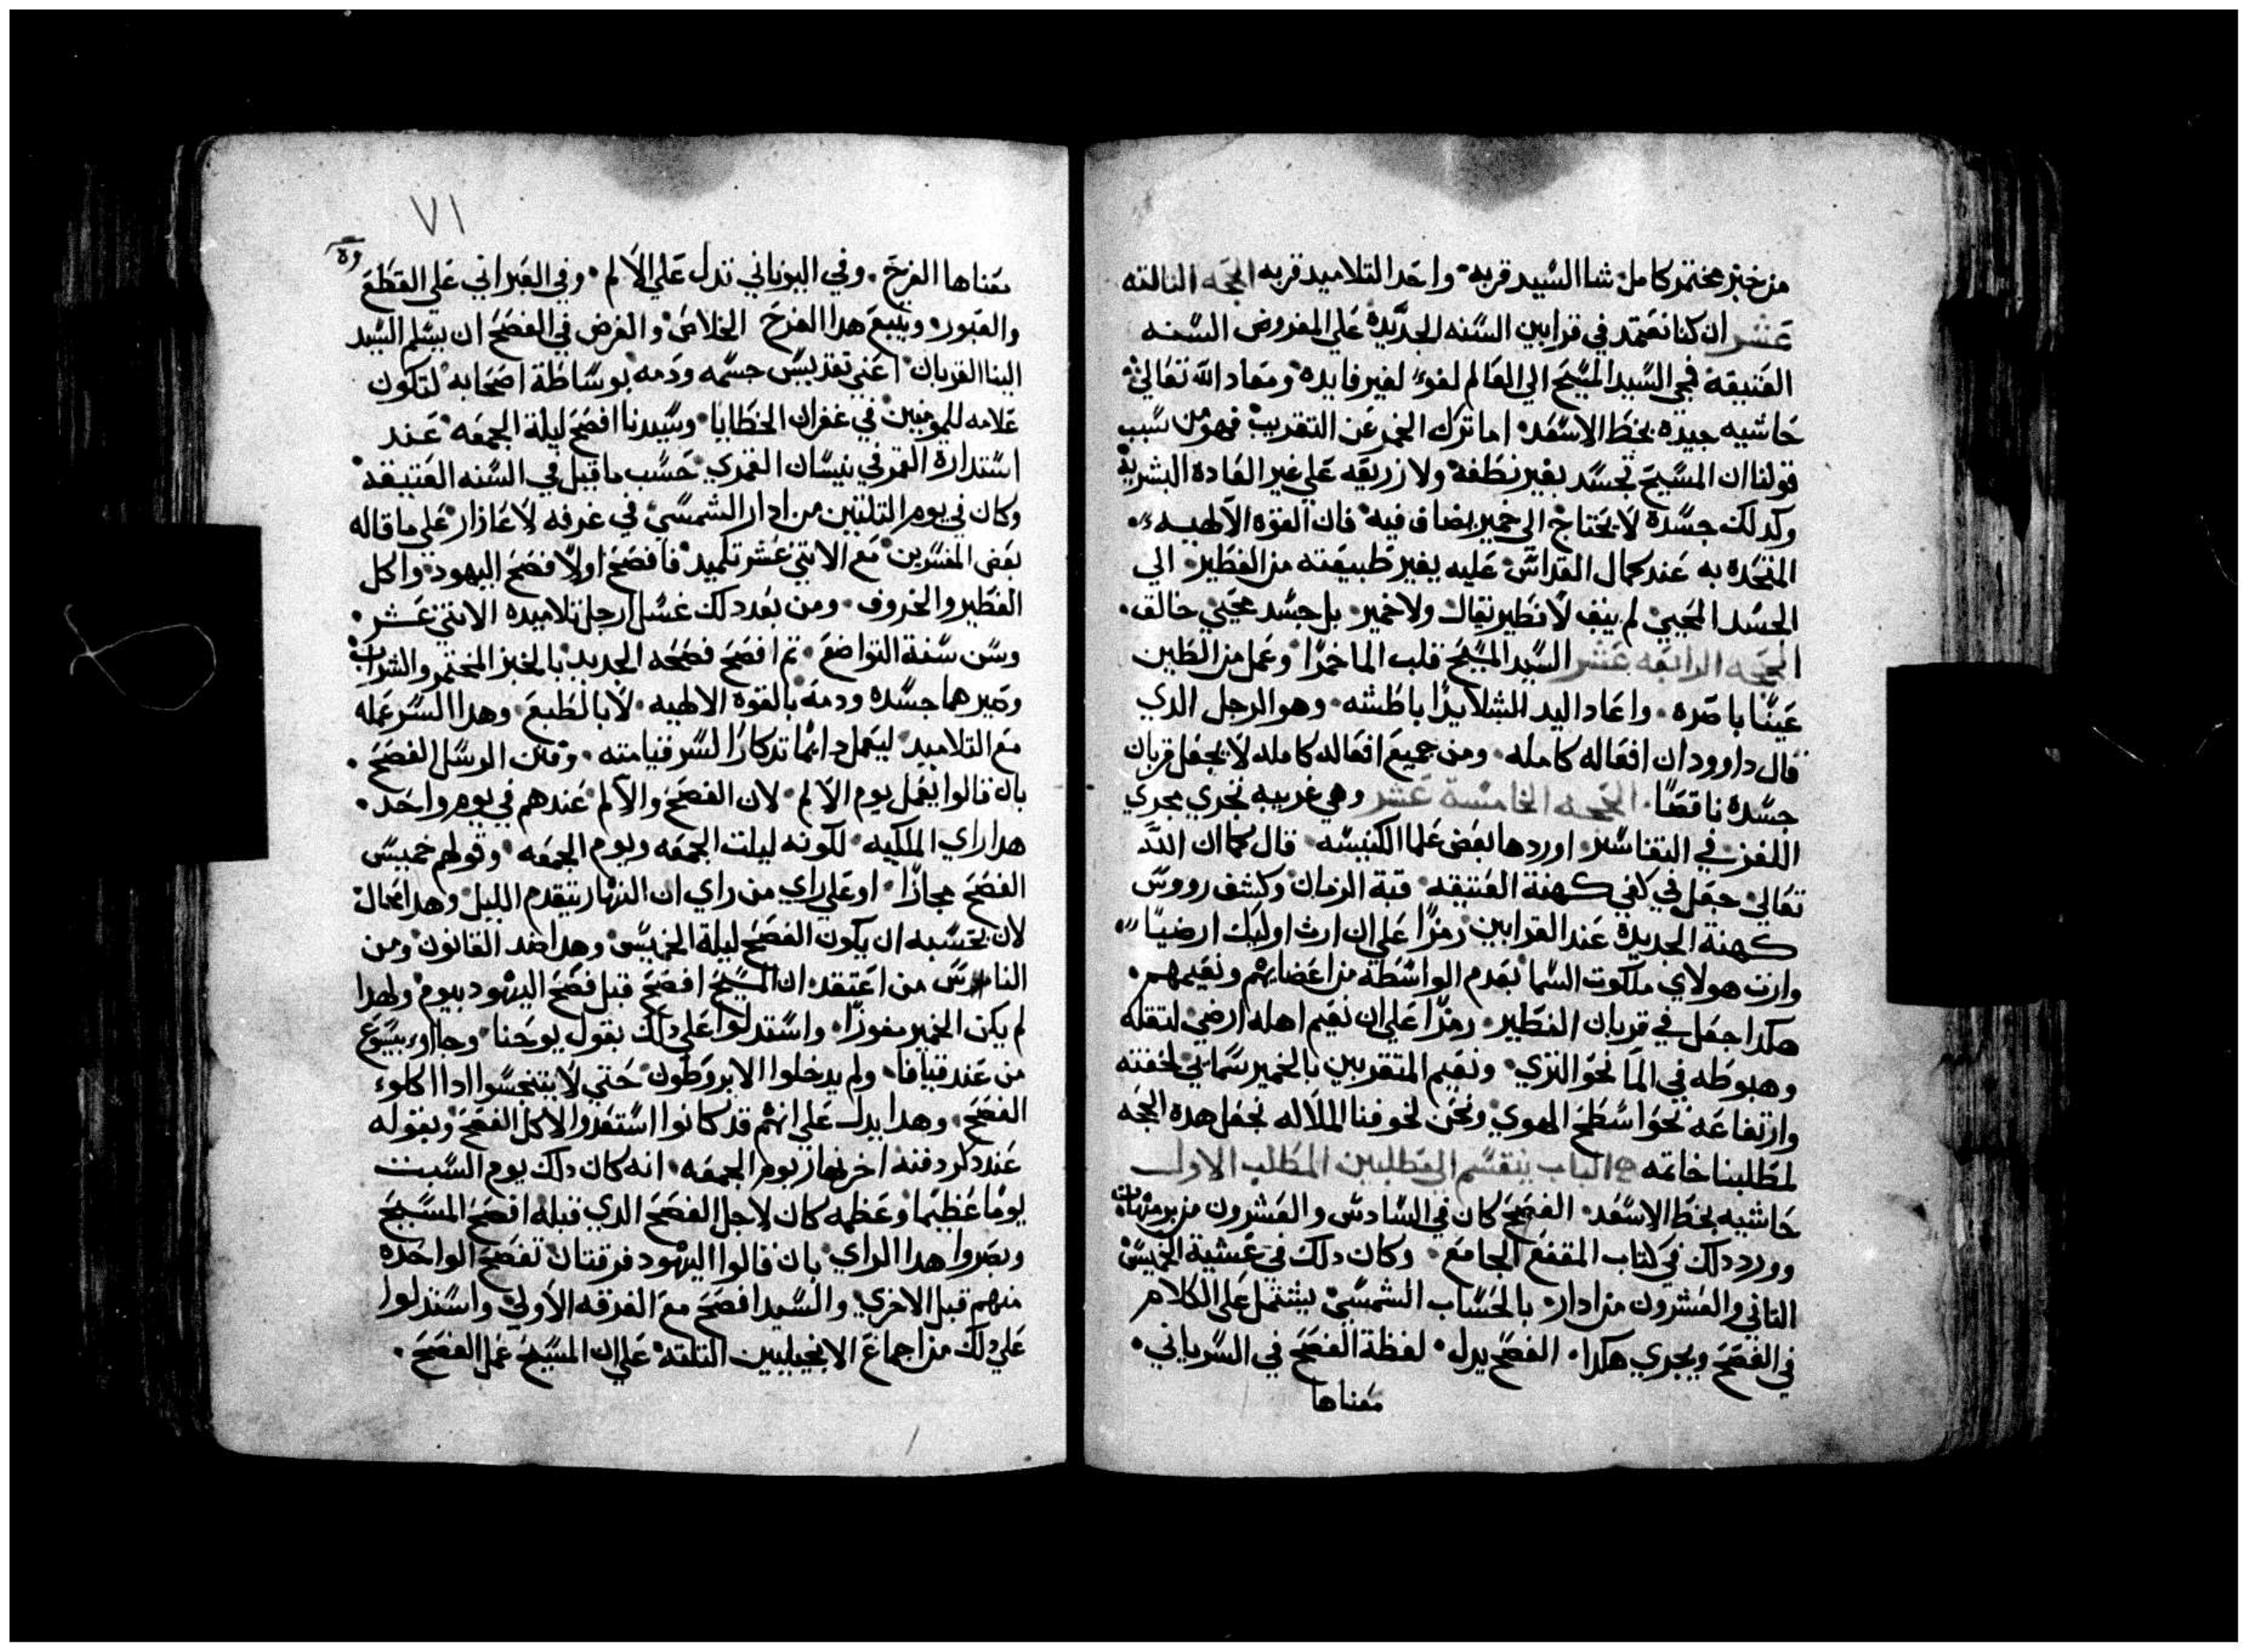 من خبز مختمر كامل شا السيد قربه واحد التلاميد قربه الحجه التالته
عشر ان كنا نعتمد في قرابين السنه الجديدة علي المفروض السنه
العتيقة فمجي السيد المسيح الي العالم لغوا لغير فايده ومعاد الله تعالي
حاشيه جيده بخط الاسعد اما ترك الخمر عن التقريب فهو من سبب
قولنا ان المسيح تجسد بغير نطفة ولا زريعه علي غير العادة البشرية
وكدلك جسده لا يحتاج الي خمير يضاف فيه فان القوه الالهيه
المتحده به عند كمال القداس عليه يغير طبيعته من الفطير الي
الجسد المحيي لم يبق لا فطير يقال ولا خمير بل جسد محيي خالق
الحجه الرابعه عشر السيد المسيح قلب الما خمرا وعمل من الطين
عينا باصره واعاد اليد الشلا يدا باطشه وهو الرجل الدي
قال داوود ان افعاله كامله ومن جميع افعاله كامله لا يجعل قربان
جسده ناقصا الحجه الخامسة عشر وهي غريبه تجري مجري
اللغز في التفاسير اوردها بعض علما الكنيسه قال كما ان الله
تعالي جعل في كفي كهنة العتيقه قبة الزمان وكشف رووس
كهنة الجديدة عند القرابين رمزا علي ان ارث اوليك ارضيا
وارت هولاي ملكوت السما بعدم الواسطه من اعضايهم ونعيمهم
هكدا جعل في قربان الفطير رمزا علي ان نعيم اهله ارضي لتقله
وهبوطه في الما نحو التري ونعيم المتقربين بالخمير سمايي لخفته
وارتفاعه نحو اسطح الهوي ونحن لخوفنا الملاله نجعل هده الحجه
لمطلبنا خاتمه الباب ينقسم الي مطلبين المطلب الاول
حاشيه بخط الاسعد الفصح كان في السادس والعشرون من برمهات
وورد دلك في كتاب المقنع الجامع وكان دلك في عشية الخميس
التاني والعشرون من ادار بالحساب الشمسي يشتمل علي الكلام
في الفصح ويجري هكدا الفصح يدل لفظة الفصح في السرياني
معناها
٧١
معناها الفرح وفي اليوناني تدل علي الالم وفي العبراني علي القطع
والعبور ويتبع هدا الفرح الخلاص والغرض في الفصح ان يسلم السيد
الينا القربان اعني تقديس جسمه ودمه بوساطة اصحابه لتكون
علامه للمومنين في غفران الخطايا وسيدنا افصح ليلة الجمعه عند
استدارة القمر في نيسان القمري حسب ما قيل في السنه العتيقة
وكان في يوم التلتين من ادار الشمسي في غرفه لاعازار علي ما قاله
بعض المفسرين مع الاتني عشر تلميد فافصح اولا فصح اليهود واكل
الفطير والخروف ومن بعد دلك غسل ارجل تلاميده الاتني عشر
وسن سنة التواضع تم افصح فصحه الجديد بالخبز المختمر والشراب
وصيرهما جسده ودمه بالقوه الالهيه لا بالطبع وهدا السر عمله
مع التلاميد ليعمل دايما تدكارا لسر قيامته وقنن الرسل الفصح
بان قالوا يعمل يوم الالم لان الفصح والالم عندهم في يوم واحد
هدا راي الملكيه لكونه ليلت الجمعه ويوم الجمعه وقولهم خميس
الفصح مجازا او علي راي من راي ان النهار يتقدم الليل وهدا محال
لان بحسبه ان يكون الفصح ليلة الخميس وهدا ضد القانون ومن
الناس من اعتقد ان المسيح افصح قبل فصح اليهود بيوم ولهدا
لم يكن الخمير معوزا واستدلوا علي دلك بقول يوحنا وجاوا بيسوع
من عند قيافا ولم يدخلوا الابروطون حتي لا يتنجسوا ادا اكلوا
الفصح وهدا يدل علي انهم قد كانوا استعدوا لاكل الفصح وبقوله
عند دكر دفنه اخر نهار يوم الجمعه انه كان دلك يوم السبت
يوما عظيما وعظمه كان لاجل الفصح الدي قبله افصح المسيح
ونصروا هدا الراي بان قالوا اليهود فرقتان تفصح الواحده
منهم قبل الاخري والسيد افصح مع الفرقه الاولي واستدلوا
علي دلك من اجماع الانجيليين التلته علي ان المسيح عمل الفصح